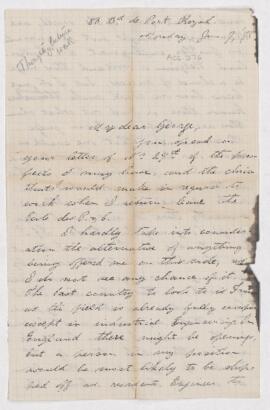 88 Bd de Port Royal
Monday, Jan. 9,
ACC 576
My dear George,
You speak in
your letter of of the
of my leave, and the
that would make in regard to
work when I return
I hardly take into consider
ation the alternative of anything
being offered me on this side, as
I do not see any chance of it.
The last country to look to is
as the field is already fully occupied
except in industrial Engineering. In
England there might be openings
but a person in my position
would be most likely to be ship
ped off as resident Engineer to